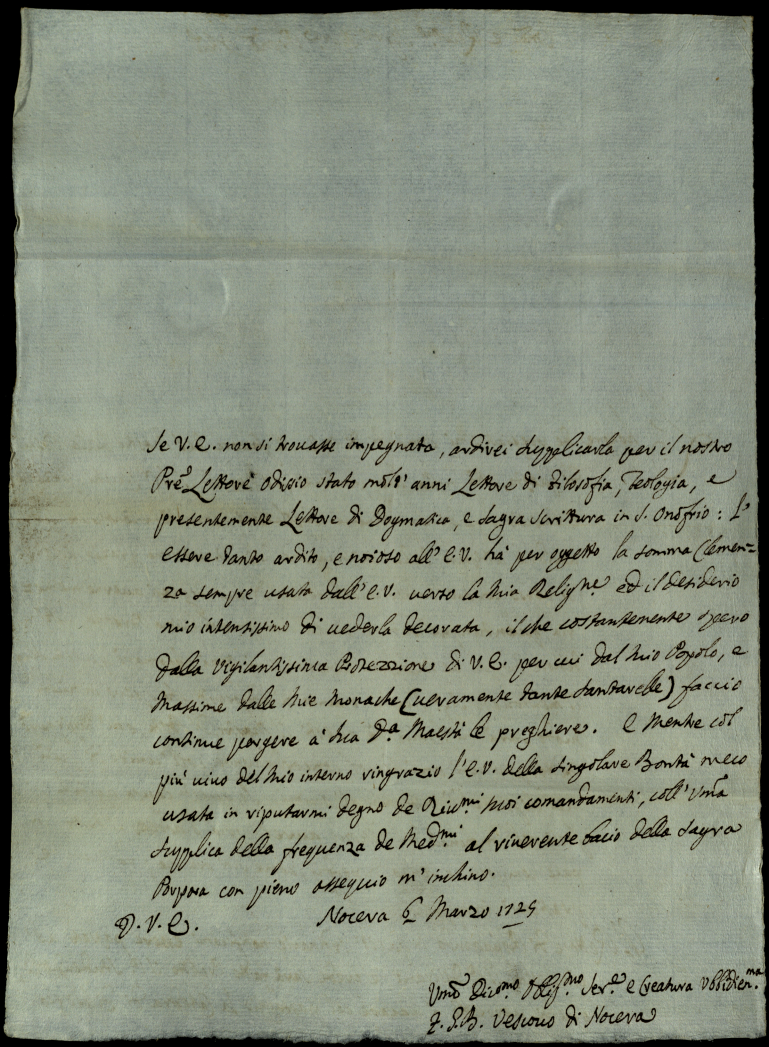 Se V. E. non si trovasse impegnata, ardirei supplicarla per il nostro
Pre Lettore Odisio stato molt' anni Lettore di Filosofia, Teologia, e
presentemente Lettore di Dogmatica, e Sagra Scrittura in S. Onofrio: L'
essere tanto ardito, e noioso all' E.V. hà per oggetto la somma Clemen=
za sempre usata dall' E.V. verso la mia Religne ed il desiderio
mio intensissimo di vederla decorata, il che costantemente spero
dalla Vigilantissima Protezzione di V.E. per cui dal mio Popolo, e
Massime dalle mie Monache (veramente tante santarelle) faccio
continue porgere à sua Da Maestà le preghiere. E mentre col
più vivo del mio interno ringrazio l' E.V. della singolare Bontà meco
usata in riputarmi degno de suoi comandamenti, coll' Uma
supplica della frequenza de Medmi al riverente bacio della Sagra
Porpora con pieno ossequio m' inchino.
D. V. E. Nocera 6 Marzo 1725
Umo Divmo Obligmo Serre e Creatura Ubbidienma
F. G.B. Vescovo di Nocera